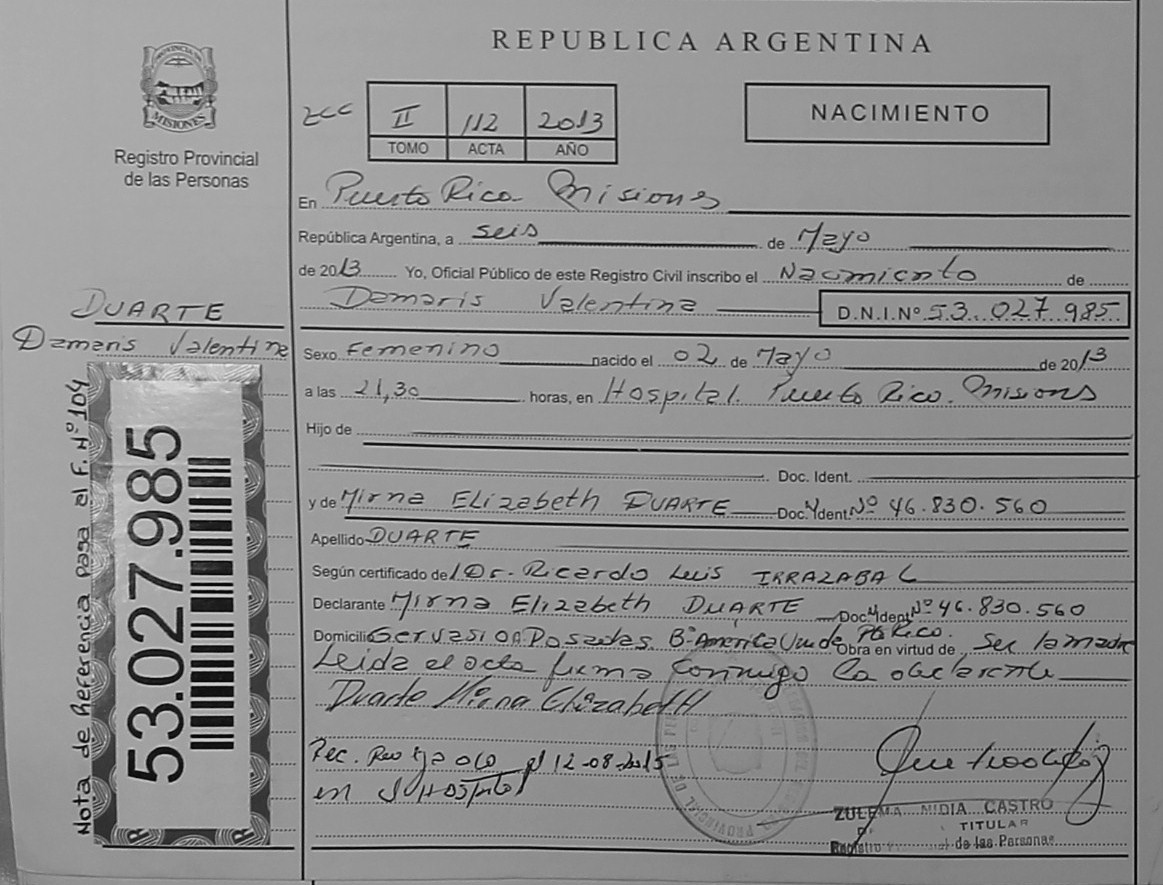 REPUBLICA ARGENTINA
PROVINCIA DE
MISIONES
Registro Provincial
de las Personas
II 112 2013
TOMO ACTA AÑO
NACIMIENTO
En Puerto Rico Misiones
República Argentina, a seis de Mayo
de 2013 Yo, Oficial Público de este Registro Civil inscribo el Nacimiento de
Damaris Valentina D.N.I.Nº 53.027.985
DUARTE
Damaris Valentina
Sexo Femenino nacido el 02 de Mayo de 2013
a las 21,30 horas, en Hospital Puerto Rico. Misiones
Hijo de
Doc. Ident.
y de Mirna ELIzabeth DUARTE Doc. Ident. Nº 46.830.560
Apellido DUARTE
Según certificado de Dr. Ricardo Luis IRRAZABAL
Declarante Mirna Elizabeth DUARTE Doc. Ident. Nº 46.830.560
Domicilio Gervasio A Posadas. Bº America Pto Rico. Obra en virtud de Ser la madre
Leida el acta firma conmigo la declarante
Duarte Mirna Elizabeth
12-08-2015
en
ZULEMA NIDIA CASTRO
TITULAR
Registro de las Personas
Nota de Referencia pasa al F. Nº 104
53.027.985